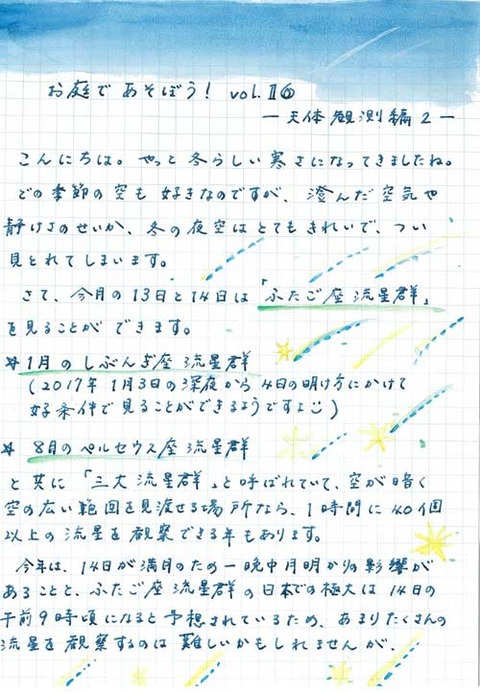 お庭であそぼう! vol.16
ー天体観測編2ー
こんにちは。やっと冬らしい寒さになってきましたね。
どの季節の空も好きなのですが、澄んだ空気や
静けさのせいか、冬の夜空はとてもきれいで、つい
見とれてしまいます。
さて、今月の13日と14日は「ふたご座流星群」
を見ることができます。
☆1月のしぶんぎ座流星群
(2017年1月3日の深夜から4日の明け方にかけて
好条件で見ることができるようですよ☺)
☆8月のペルセウス座流星群
と共に「三大流星群」と呼ばれていて、空が暗く
空の広い範囲を見渡せる場所なら、1時間に40個
以上の流星を観察できる年もあります。
今年は、14日が満月のため一晩中月明かりの影響が
あることと、ふたご座流星群の日本での極大は14日の
午前9時頃になると予想されているため、あまりたくさんの
流星を観察するのは難しいかもしれませんが、